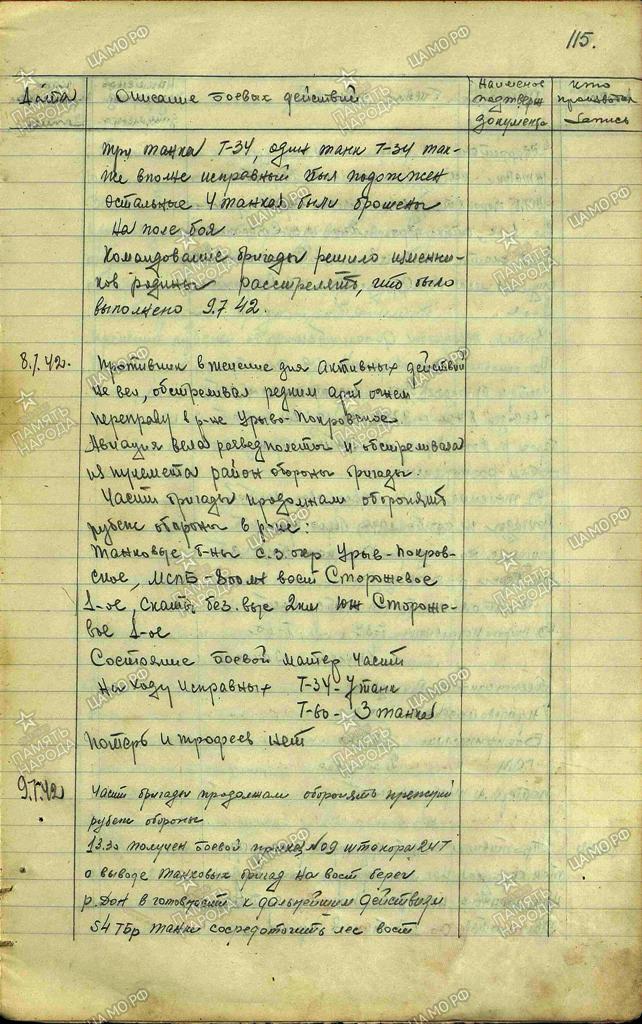 115.
Дата
Описание боевых действий
Наименов подтвержд документа
кто производил запись
три танка Т-34, один танк Т-34 так-
же вполне исправный был подожжен
остальные 4 танка были брошены
на поле боя
Командование бригады решило изменни-
ков родины расстрелять, что было
выполнено 9.7.42.
8.7.42. Противник в течение дня активных действий
не вел, обстреливал редким арт огнем
переправу в р-не Урыво-Покровское.
Авиация вела разведполеты и обстреливала
из пулемета район обороны бригады.
Части бригады продолжали оборонять
рубеж обороны в р-не:
Танковые б-ны с.з. окр Урыв-Покров-
ское, МСПБ - 800м вост Сторожевое
1-ое, скаты без. выс 2км юж Стороже-
вое 1-ое
Состояние боевой матер части
На ходу исправных Т-34 - 7 танк
Т-60 - 3 танка
Потерь и трофеев нет
9.7.42 Части бригады продолжали оборонять прежний
рубеж обороны
13.30 получен боевой приказ №09 штакора 24Т
о выводе танковых бригад на вост берег
р. Дон в готовности к дальнейшим действиям
54 ТБр танки сосредоточить лес вост
ЦАМО.РФ
ПАМЯТЬ НАРОДА